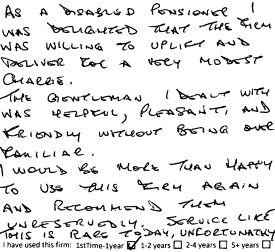 AS A DISABLED PENSIONER I
WAS DELIGHTED THAT THE FIRM
WAS WILLING TO UPLIFT AND
DELIVER FOR A VERY MODEST
CHARGE.
THE GENTLEMAN I DEALT WITH
WAS HELPFUL, PLEASANT, AND
FRIENDLY WITHOUT BEING OVER
FAMILIAR.
I WOULD BE MORE THAN HAPPY
TO USE THIS FIRM AGAIN
AND RECOMMEND THEM
UNRESERVEDLY. SERVICE LIKE
THIS IS RARE TODAY, UNFORTUNATELY
I have used this firm: 1stTime-1year 1-2 years 2-4 years 5+ years